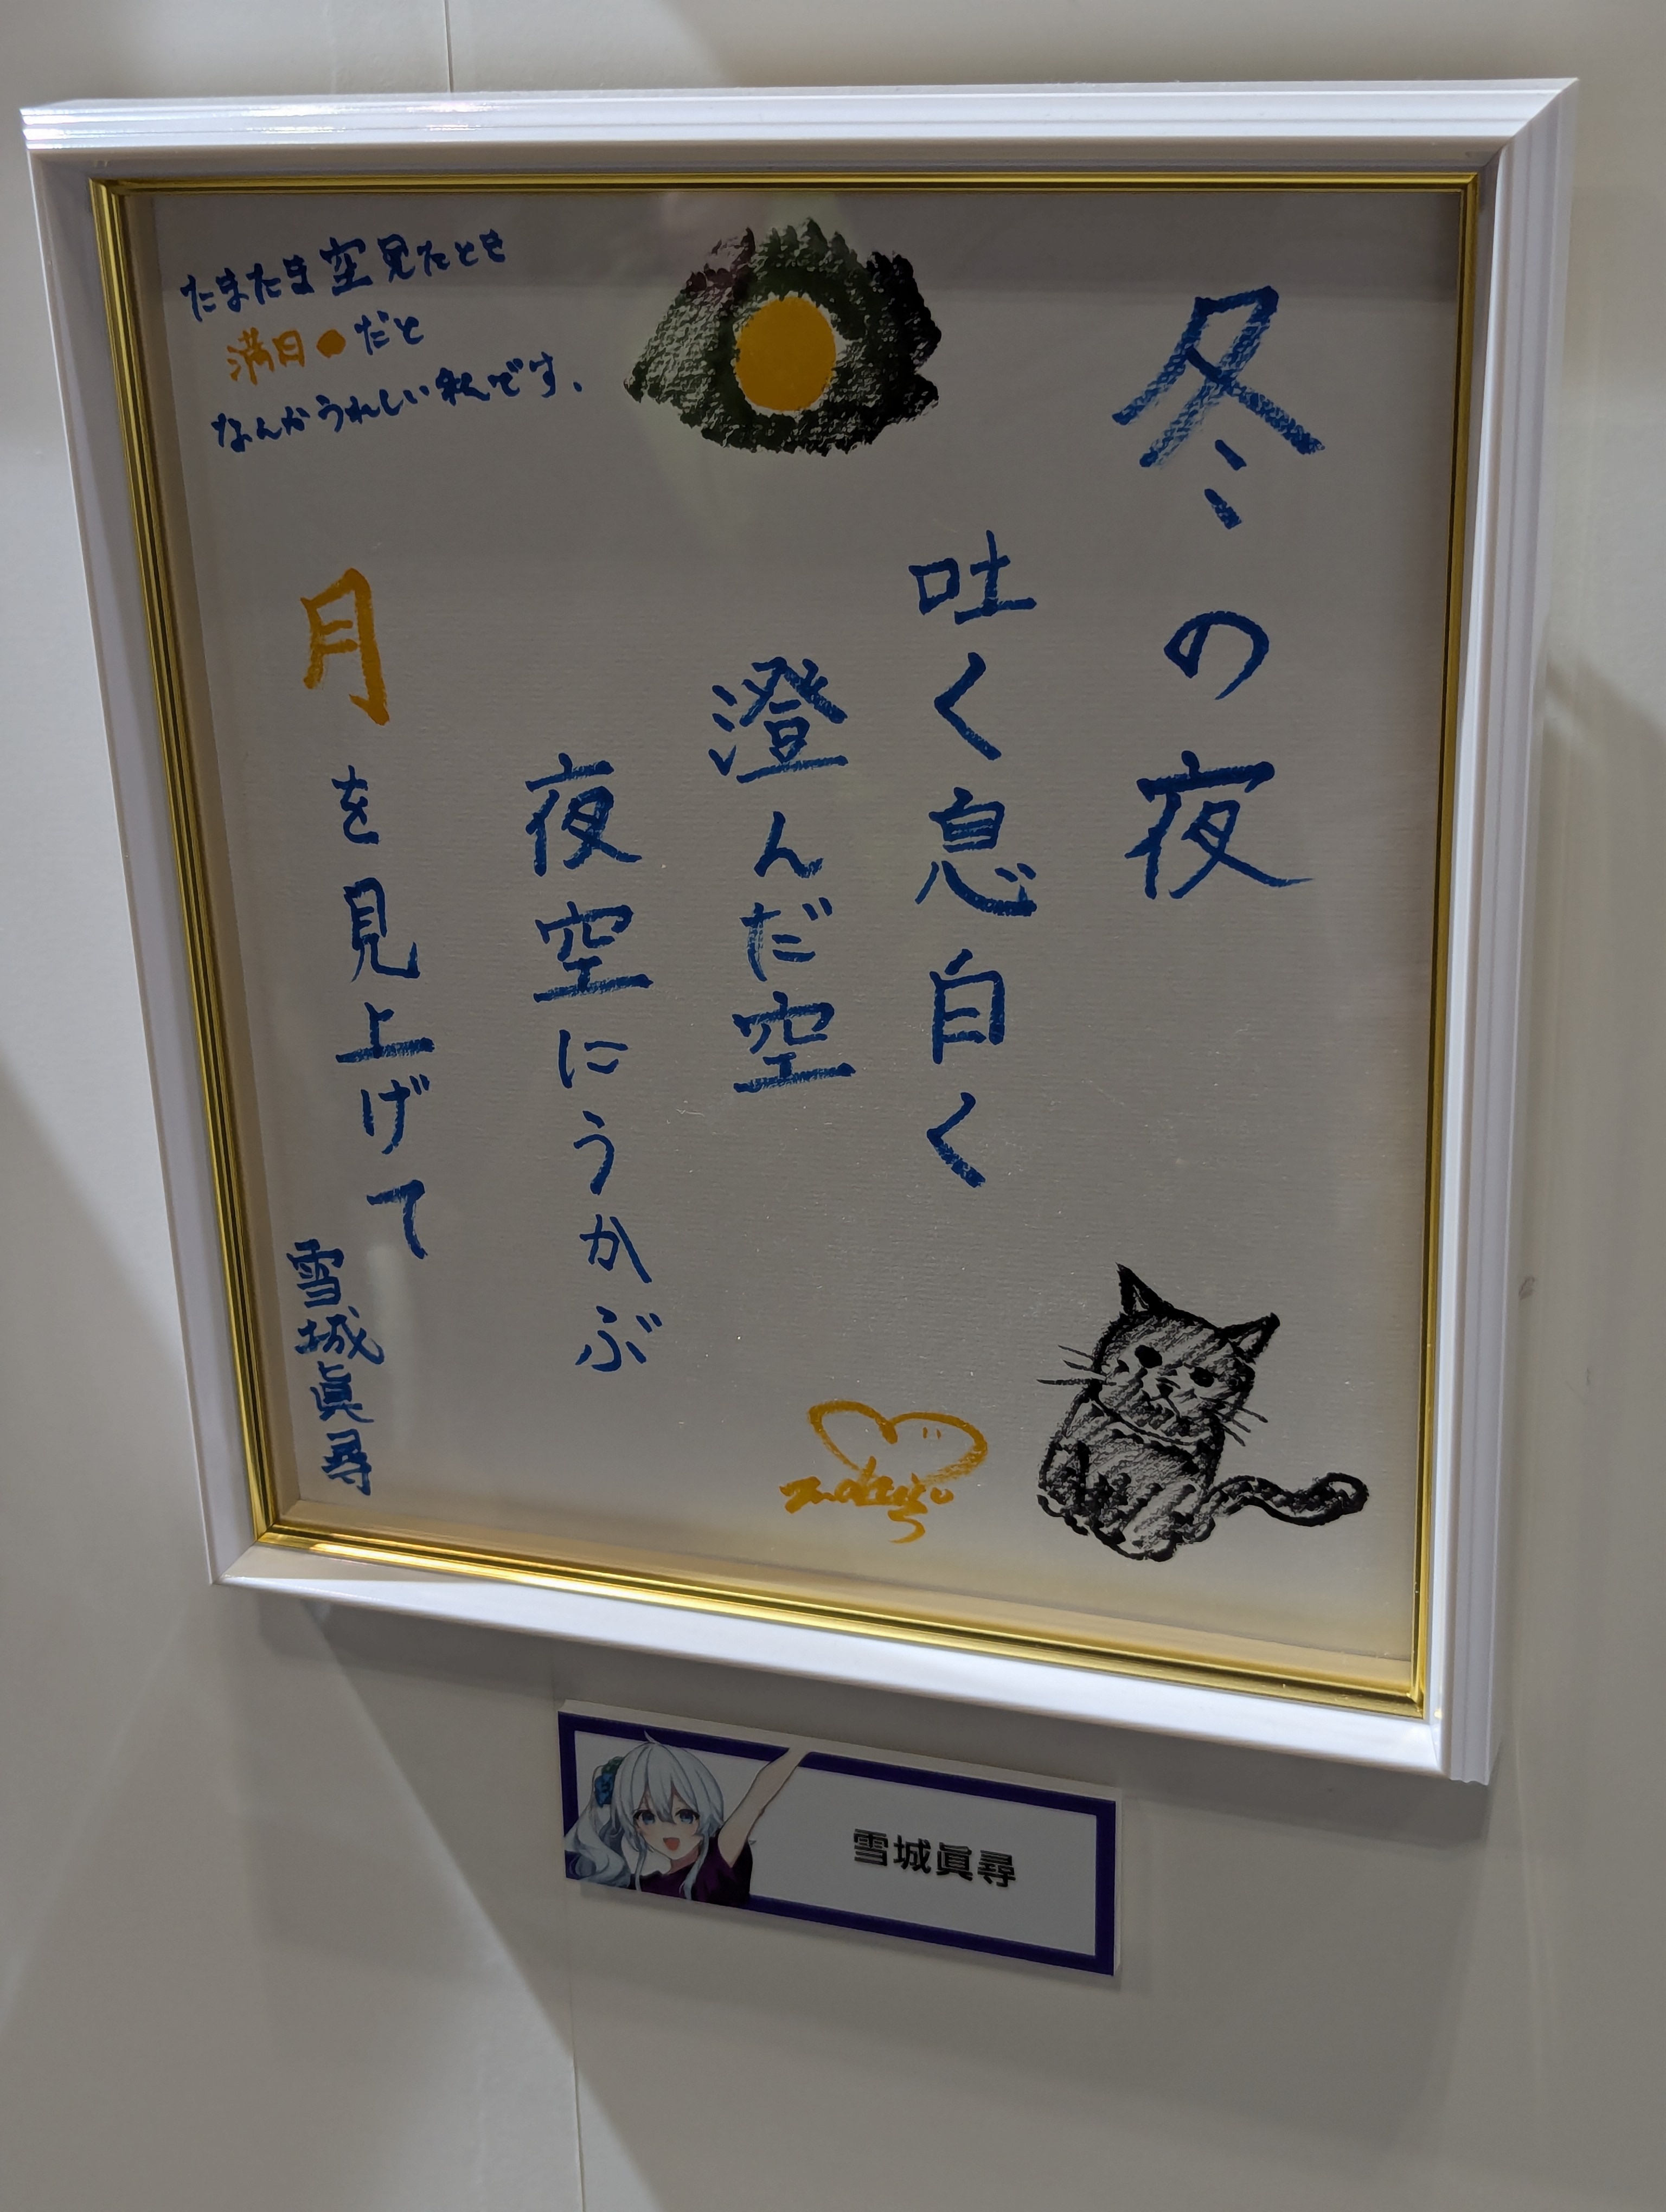 冬の夜
吐く息白く
澄んだ空
夜空にうかぶ
月を見上げて
雪城眞尋
たまたま空見たとき
満月●だと
なんかうれしい私です.
雪城眞尋